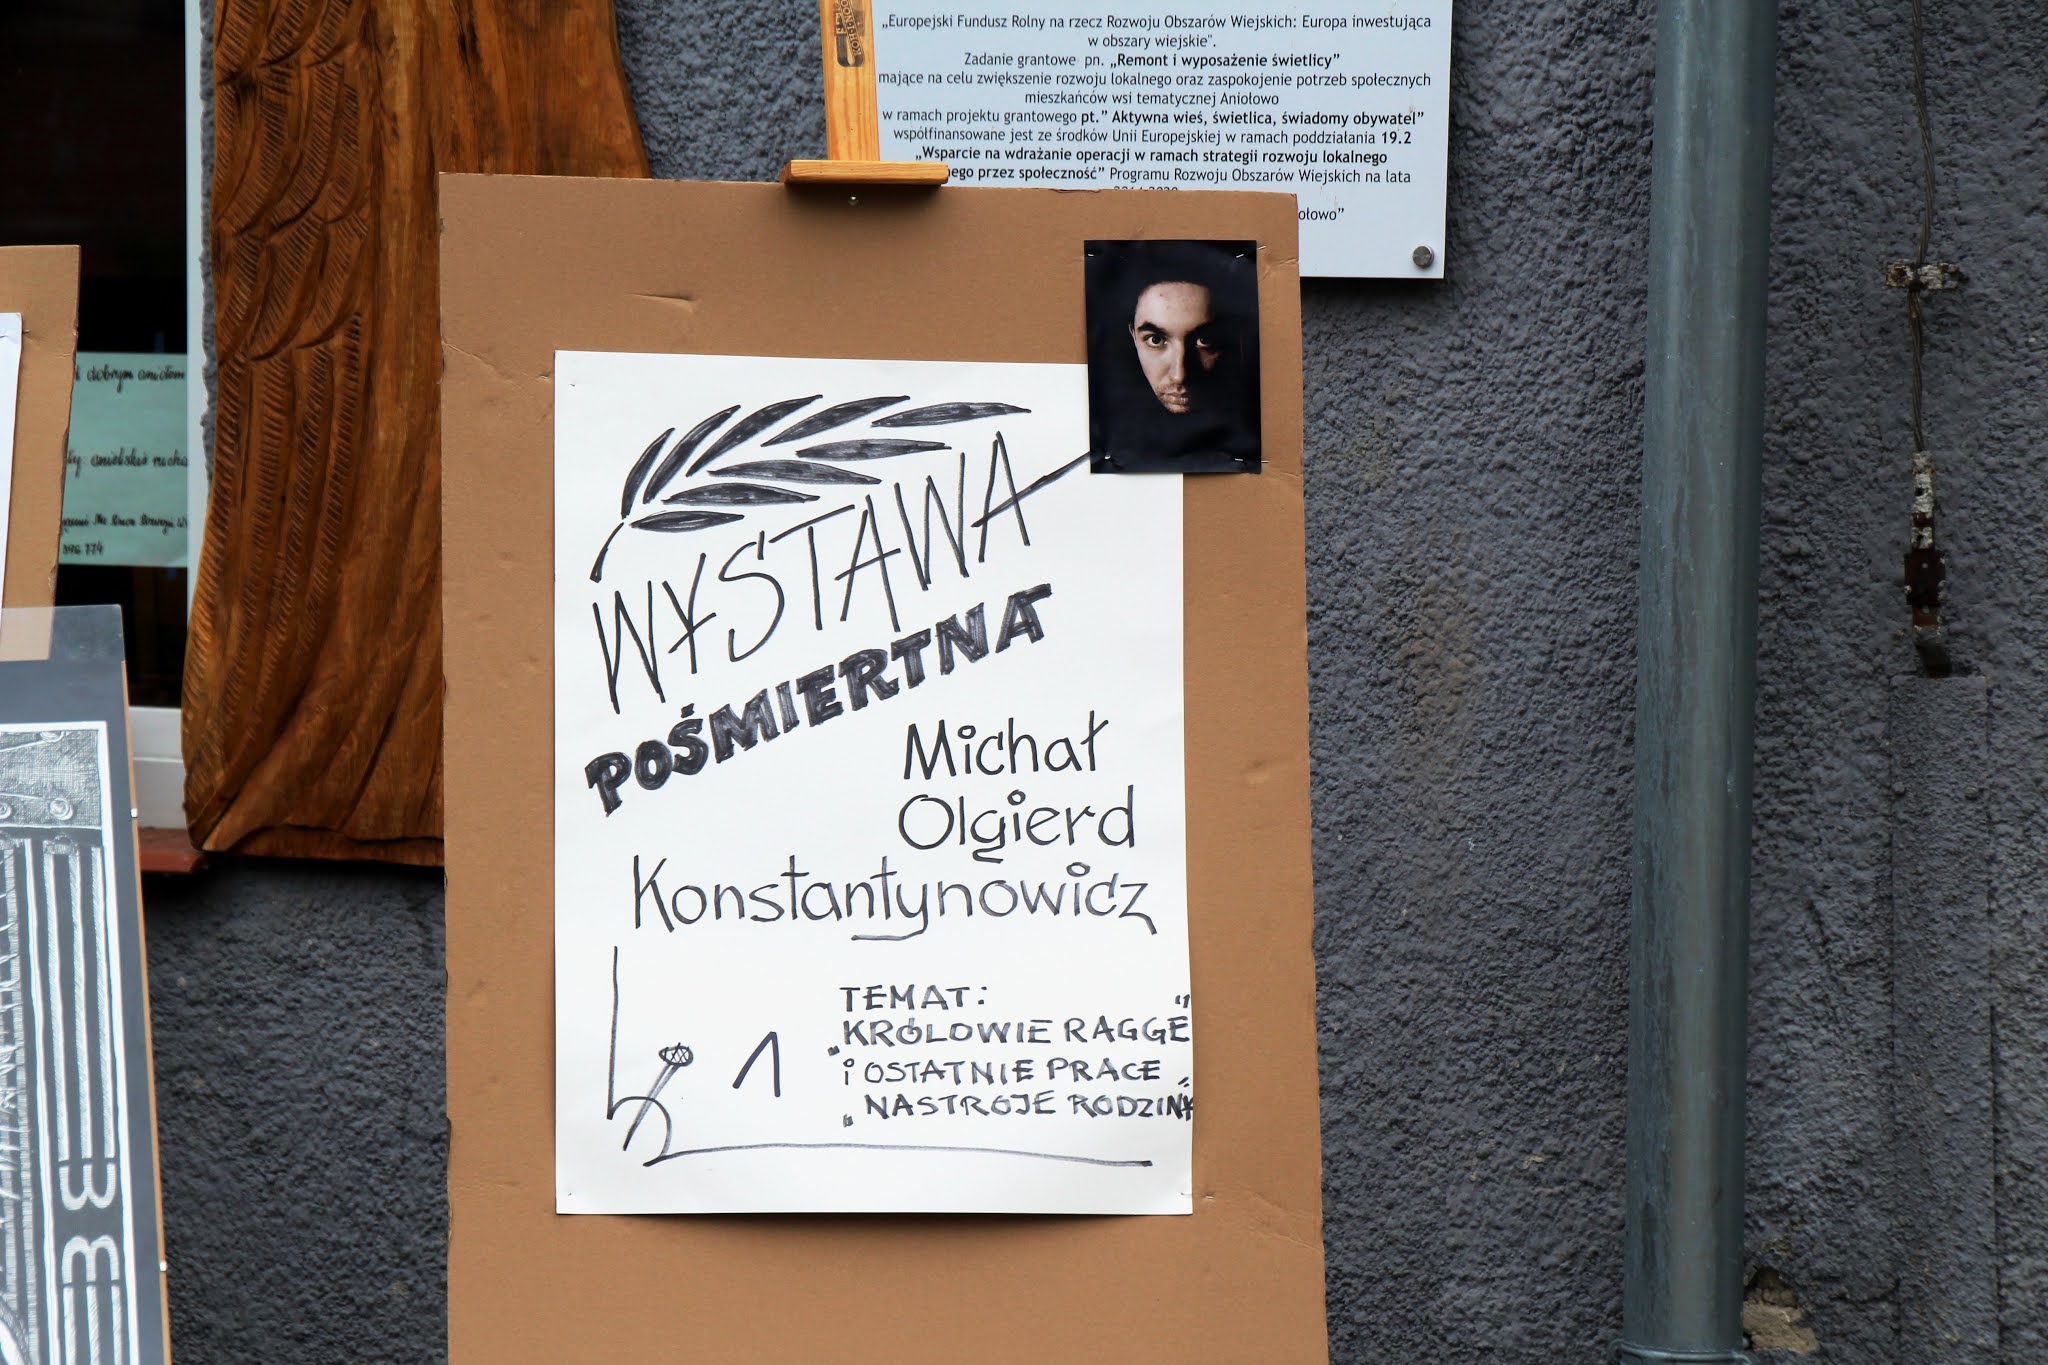 „Europejski Fundusz Rolny na rzecz Rozwoju Obszarów Wiejskich: Europa inwestująca
w obszary wiejskie".
Zadanie grantowe pn. „Remont i wyposażenie świetlicy”
mające na celu zwiększenie rozwoju lokalnego oraz zaspokojenie potrzeb społecznych
mieszkańców wsi tematycznej Aniołowo
w ramach projektu grantowego pt.” Aktywna wieś, świetlica, świadomy obywatel”
współfinansowane jest ze środków Unii Europejskiej w ramach poddziałania 19.2
„Wsparcie na wdrażanie operacji w ramach strategii rozwoju lokalnego
przez społeczność” Programu Rozwoju Obszarów Wiejskich na lata
KOH-I-NOO
dobrym aniołem
346 774
WYSTAWA
POŚMIERTNA
Michał
Olgierd
Konstantynowicz
1
TEMAT:
„KRÓLOWIE RAGGE"
i OSTATNIE PRACE
„NASTROJE RODZINY"